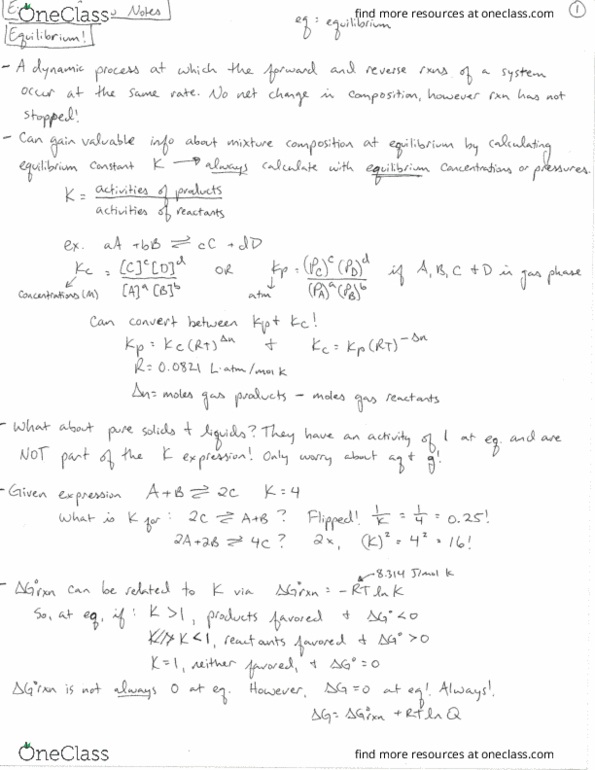 OneClass
find more resources at oneclass.com
1
Notes
eq: equilibrium
Equilibrium!
- A dynamic process at which the forward and reverse rxns of a system
occur at the same rate. No net change in composition, however rxn has not
stopped!
- Can gain valuable info about mixture composition at equilibrium by calculating
equilibrium constant K → always calculate with equilibrium concentrations or pressures.
K = activities of products
activities of reactants
ex. aA + bB ⇌ cC + dD
Kc = [C]^c [D]^d / [A]^a [B]^b OR Kp = (PC)^c (PD)^d / (PA)^a (PB)^b if A, B, C + D in gas phase
concentrations (M) atm
Can convert between Kp + Kc!
Kp = Kc (RT)^Δn + Kc = Kp (RT)^-Δn
R = 0.0821 L·atm/mol K
Δn = moles gas products - moles gas reactants
- What about pure solids + liquids? They have an activity of 1 at eq. and are
NOT part of the K expression! Only worry about aq + g!
- Given expression A + B ⇌ 2C K = 4
What is K for: 2C ⇌ A + B? Flipped! 1/K = 1/4 = 0.25!
2A + 2B ⇌ 4C? 2x, (K)² = 4² = 16!
8.314 J/mol K
- ΔG°rxn can be related to K via ΔG°rxn = -RT ln K
So, at eq, if: K > 1, products favored + ΔG° < 0
K < 1, reactants favored + ΔG° > 0
K = 1, neither favored, + ΔG° = 0
ΔG°rxn is not always 0 at eq. However, ΔG = 0 at eq! Always!
ΔG = ΔG°rxn + RT ln Q
OneClass
find more resources at oneclass.com